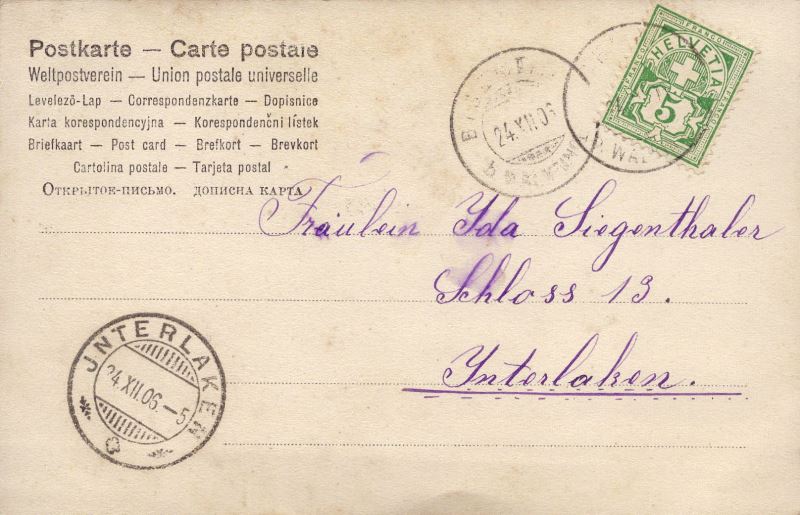 Postkarte — Carte postale
Weltpostverein — Union postale universelle
Levelező-Lap — Correspondenzkarte — Dopisnice
Karta korespondencyjna — Korespondenční lístek
Briefkaart — Post card — Brefkort — Brevkort
Cartolina postale — Tarjeta postal
Открытое-письмо. дописна карта
24.XII.06
FRANCO
HELVETIA
5
Fräulein Ida Siegenthaler
Schloss 13.
Interlaken.
JNTERLAKEN
24.XII.06.–5